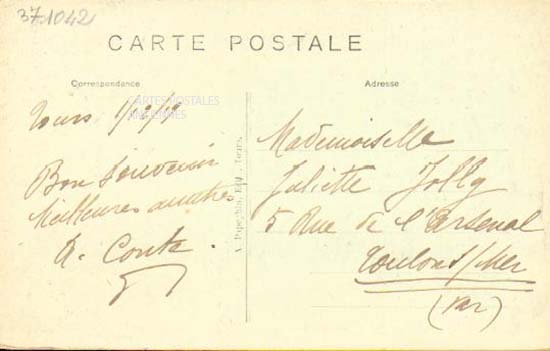 371042
CARTE POSTALE
Correspondance
Adresse
CARTES POSTALES
ANCIENNES
Tours 1/12/19
Bon Souvenir
Meilleures amitiés
A. Papeghin, Edit., Tours.
Mademoiselle
Juliette Jolly
5 Rue de l'Arsenal
Toulon s/Mer
(Var)